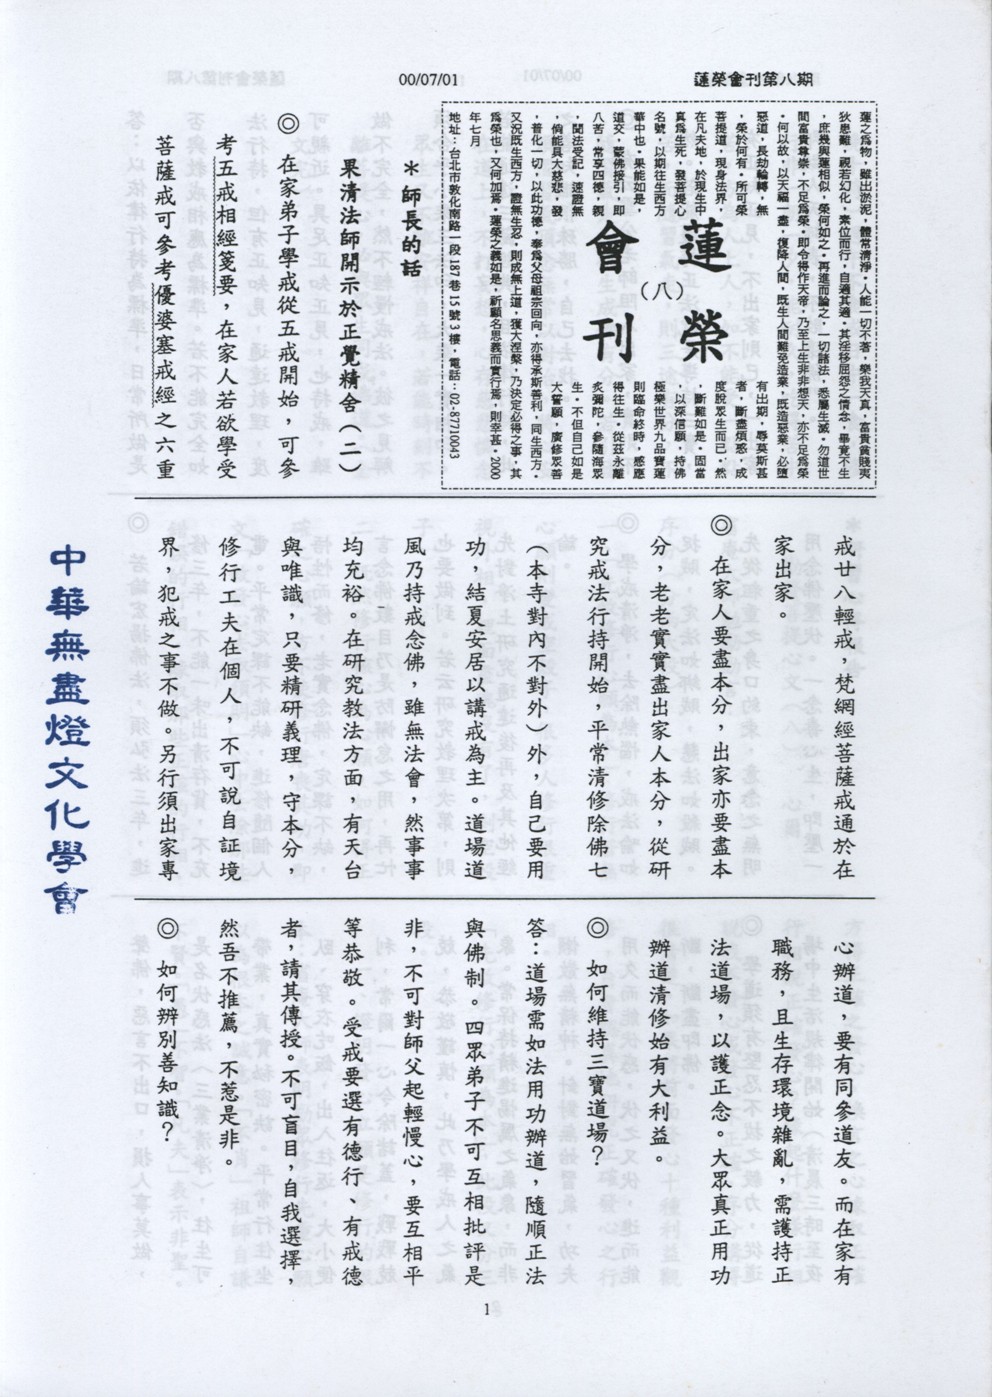 蓮榮會刊第八期
00/07/01
蓮榮
會刊
（八）
蓮之為物，雖出淤泥，體常清淨，人能一切不著，樂我天真，富貴貧賤夷
狄患難，視若幻化，素位而行，自適其適，其淫移屈怨之情念，畢竟不生
，庶幾與蓮相似，榮何如之。再進而論之，一切諸法，悉屬生滅，勿道世
間富貴尊崇，不足為榮，即令得作天帝，乃至上生非非想天，亦不足為榮
。何以故，以天福一盡，復降人間，既生人間難免造業，既造惡業，必墮
惡道，長劫輪轉，無
有出期，辱莫斯甚
，榮於何有。所可榮
者，斷盡煩惑，成
菩提道，現身法界，
度脫眾生而已。然
在凡夫地，於現生中
，斷難如是。固當
真為生死，發菩提心
，以深信願，持佛
名號，以期往生西方
極樂世界九品寶蓮
華中也。果能如是，
則臨命終時，感應
道交，蒙佛接引，即
得往生，從茲永離
八苦，常享四德，親
炙彌陀，參隨海眾
，聞法受記，速證無
生。不但自己如是
，倘能具大慈悲，發
大誓願，廣修眾善
，普化一切，以此功德，奉為父母祖宗回向，亦得承斯善利，同生西方。
又況既生西方，證無生忍，則成無上道，獲大涅槃，乃決定必得之事，其
為榮也，又何加焉。蓮榮之義如是，祈顧名思義而實行焉，則幸甚。2000
年七月
地址：台北市敦化南路一段187巷15號3樓，電話：02-87710043
＊師長的話
果清法師開示於正覺精舍（二）
◎ 在家弟子學戒從五戒開始，可參
考五戒相經箋要，在家人若欲學受
菩薩戒可參考優婆塞戒經之六重
戒廿八輕戒，梵網經菩薩戒通於在
家出家。
◎ 在家人要盡本分，出家亦要盡本
分，老老實實盡出家人本分，從研
究戒法行持開始，平常清修除佛七
（本寺對內不對外）外，自己要用
功，結夏安居以講戒為主。道場道
風乃持戒念佛，雖無法會，然事事
均充裕。在研究教法方面，有天台
與唯識，只要精研義理，守本分，
修行工夫在個人，不可說自証境
界，犯戒之事不做。另行須出家專
心辦道，要有同參道友。而在家有
職務，且生存環境雜亂，需護持正
法道場，以護正念。大眾真正用功
辦道清修始有大利益。
◎ 如何維持三寶道場？
答：道場需如法用功辦道，隨順正法
與佛制。四眾弟子不可互相批評是
非，不可對師父起輕慢心，要互相平
等恭敬。受戒要選有德行、有戒德
者，請其傳授。不可盲目，自我選擇，
然吾不推薦，不惹是非。
◎ 如何辨別善知識？
中華無盡燈文化學會
1